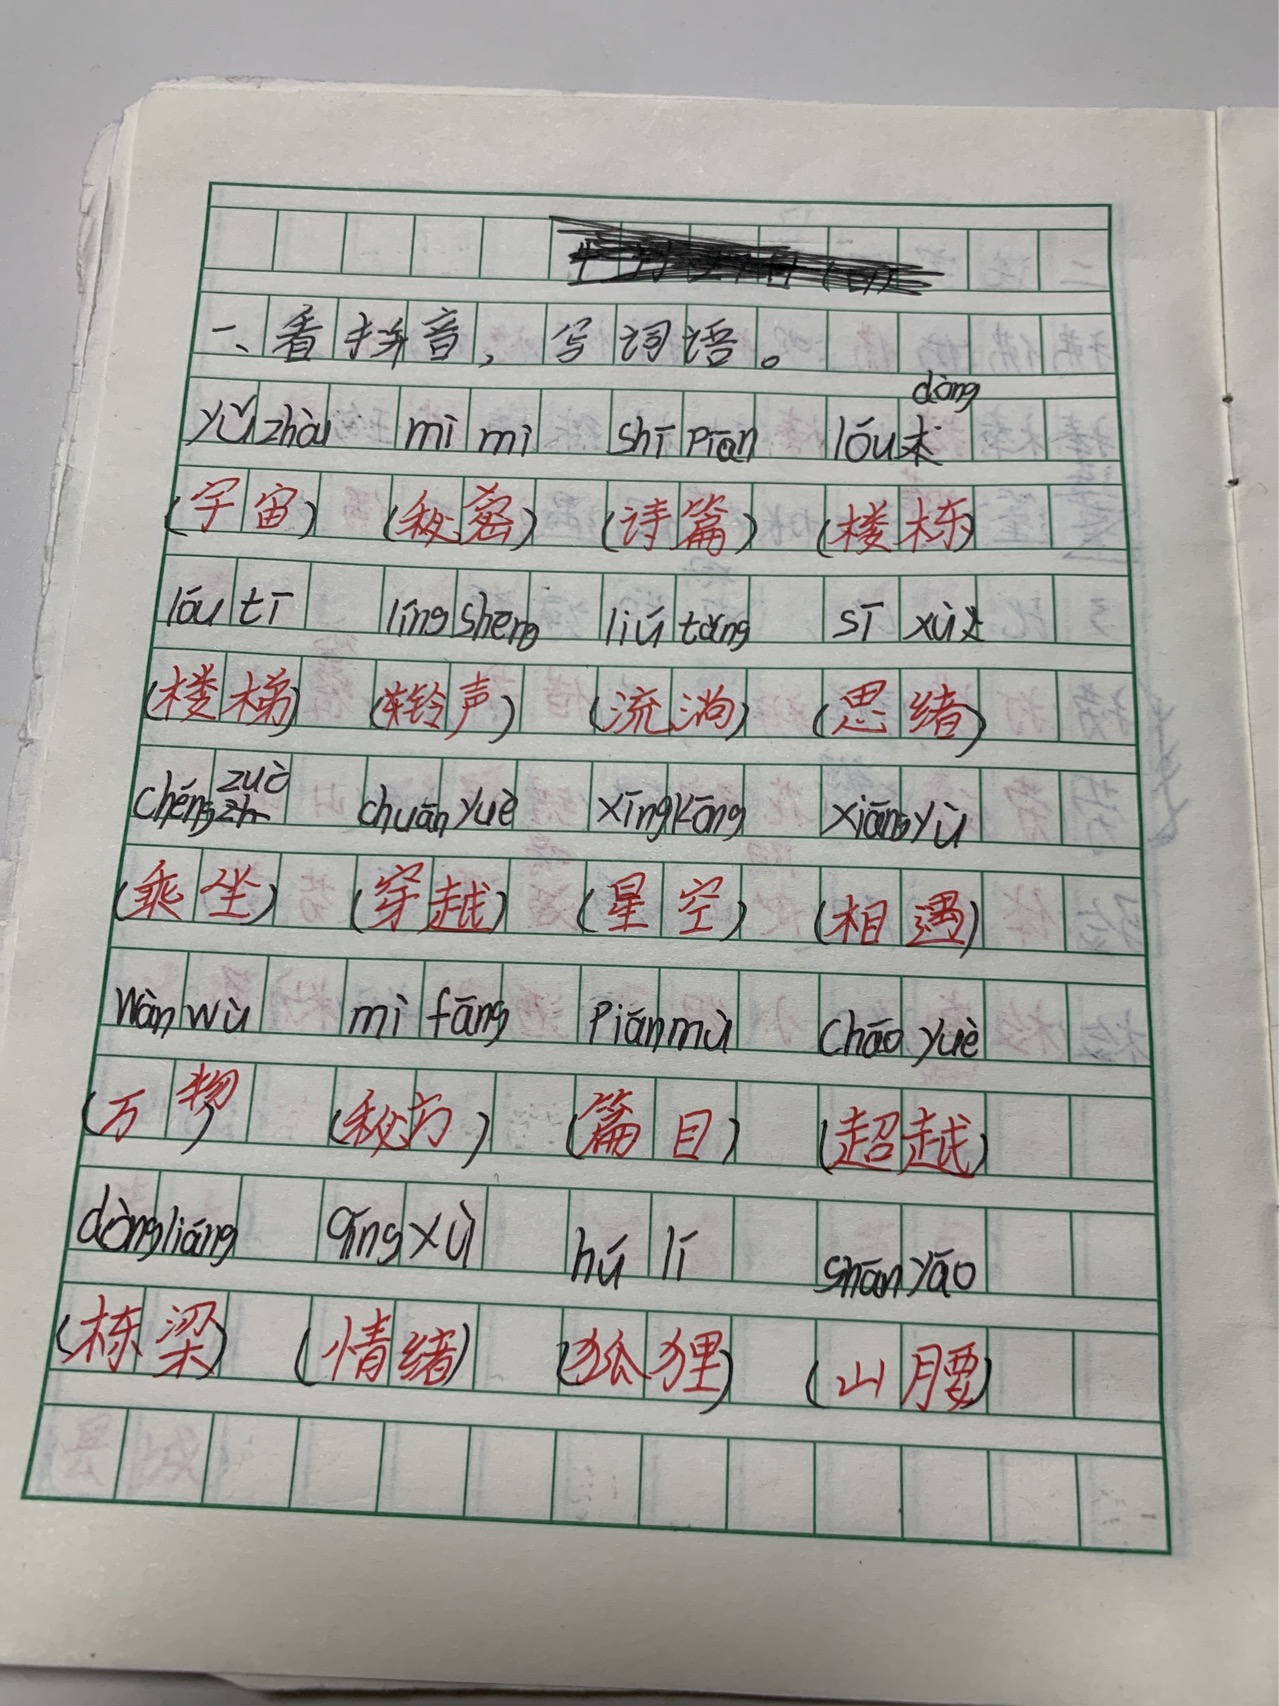 一、看拼音，写词语。
dòng
yǔ zhòu mì mì shī piān lóu
(宇宙) (秘密) (诗篇) (楼栋)
lóu tī líng shēng liú tǎng sī xù
(楼梯) (铃声) (流淌) (思绪)
zuò
chéng chuān yuè xīng kōng xiāng yù
(乘坐) (穿越) (星空) (相遇)
wàn wù mì fāng piān mù chāo yuè
(万物) (秘方) (篇目) (超越)
dòng liáng qíng xù hú lí shān yāo
(栋梁) (情绪) (狐狸) (山腰)